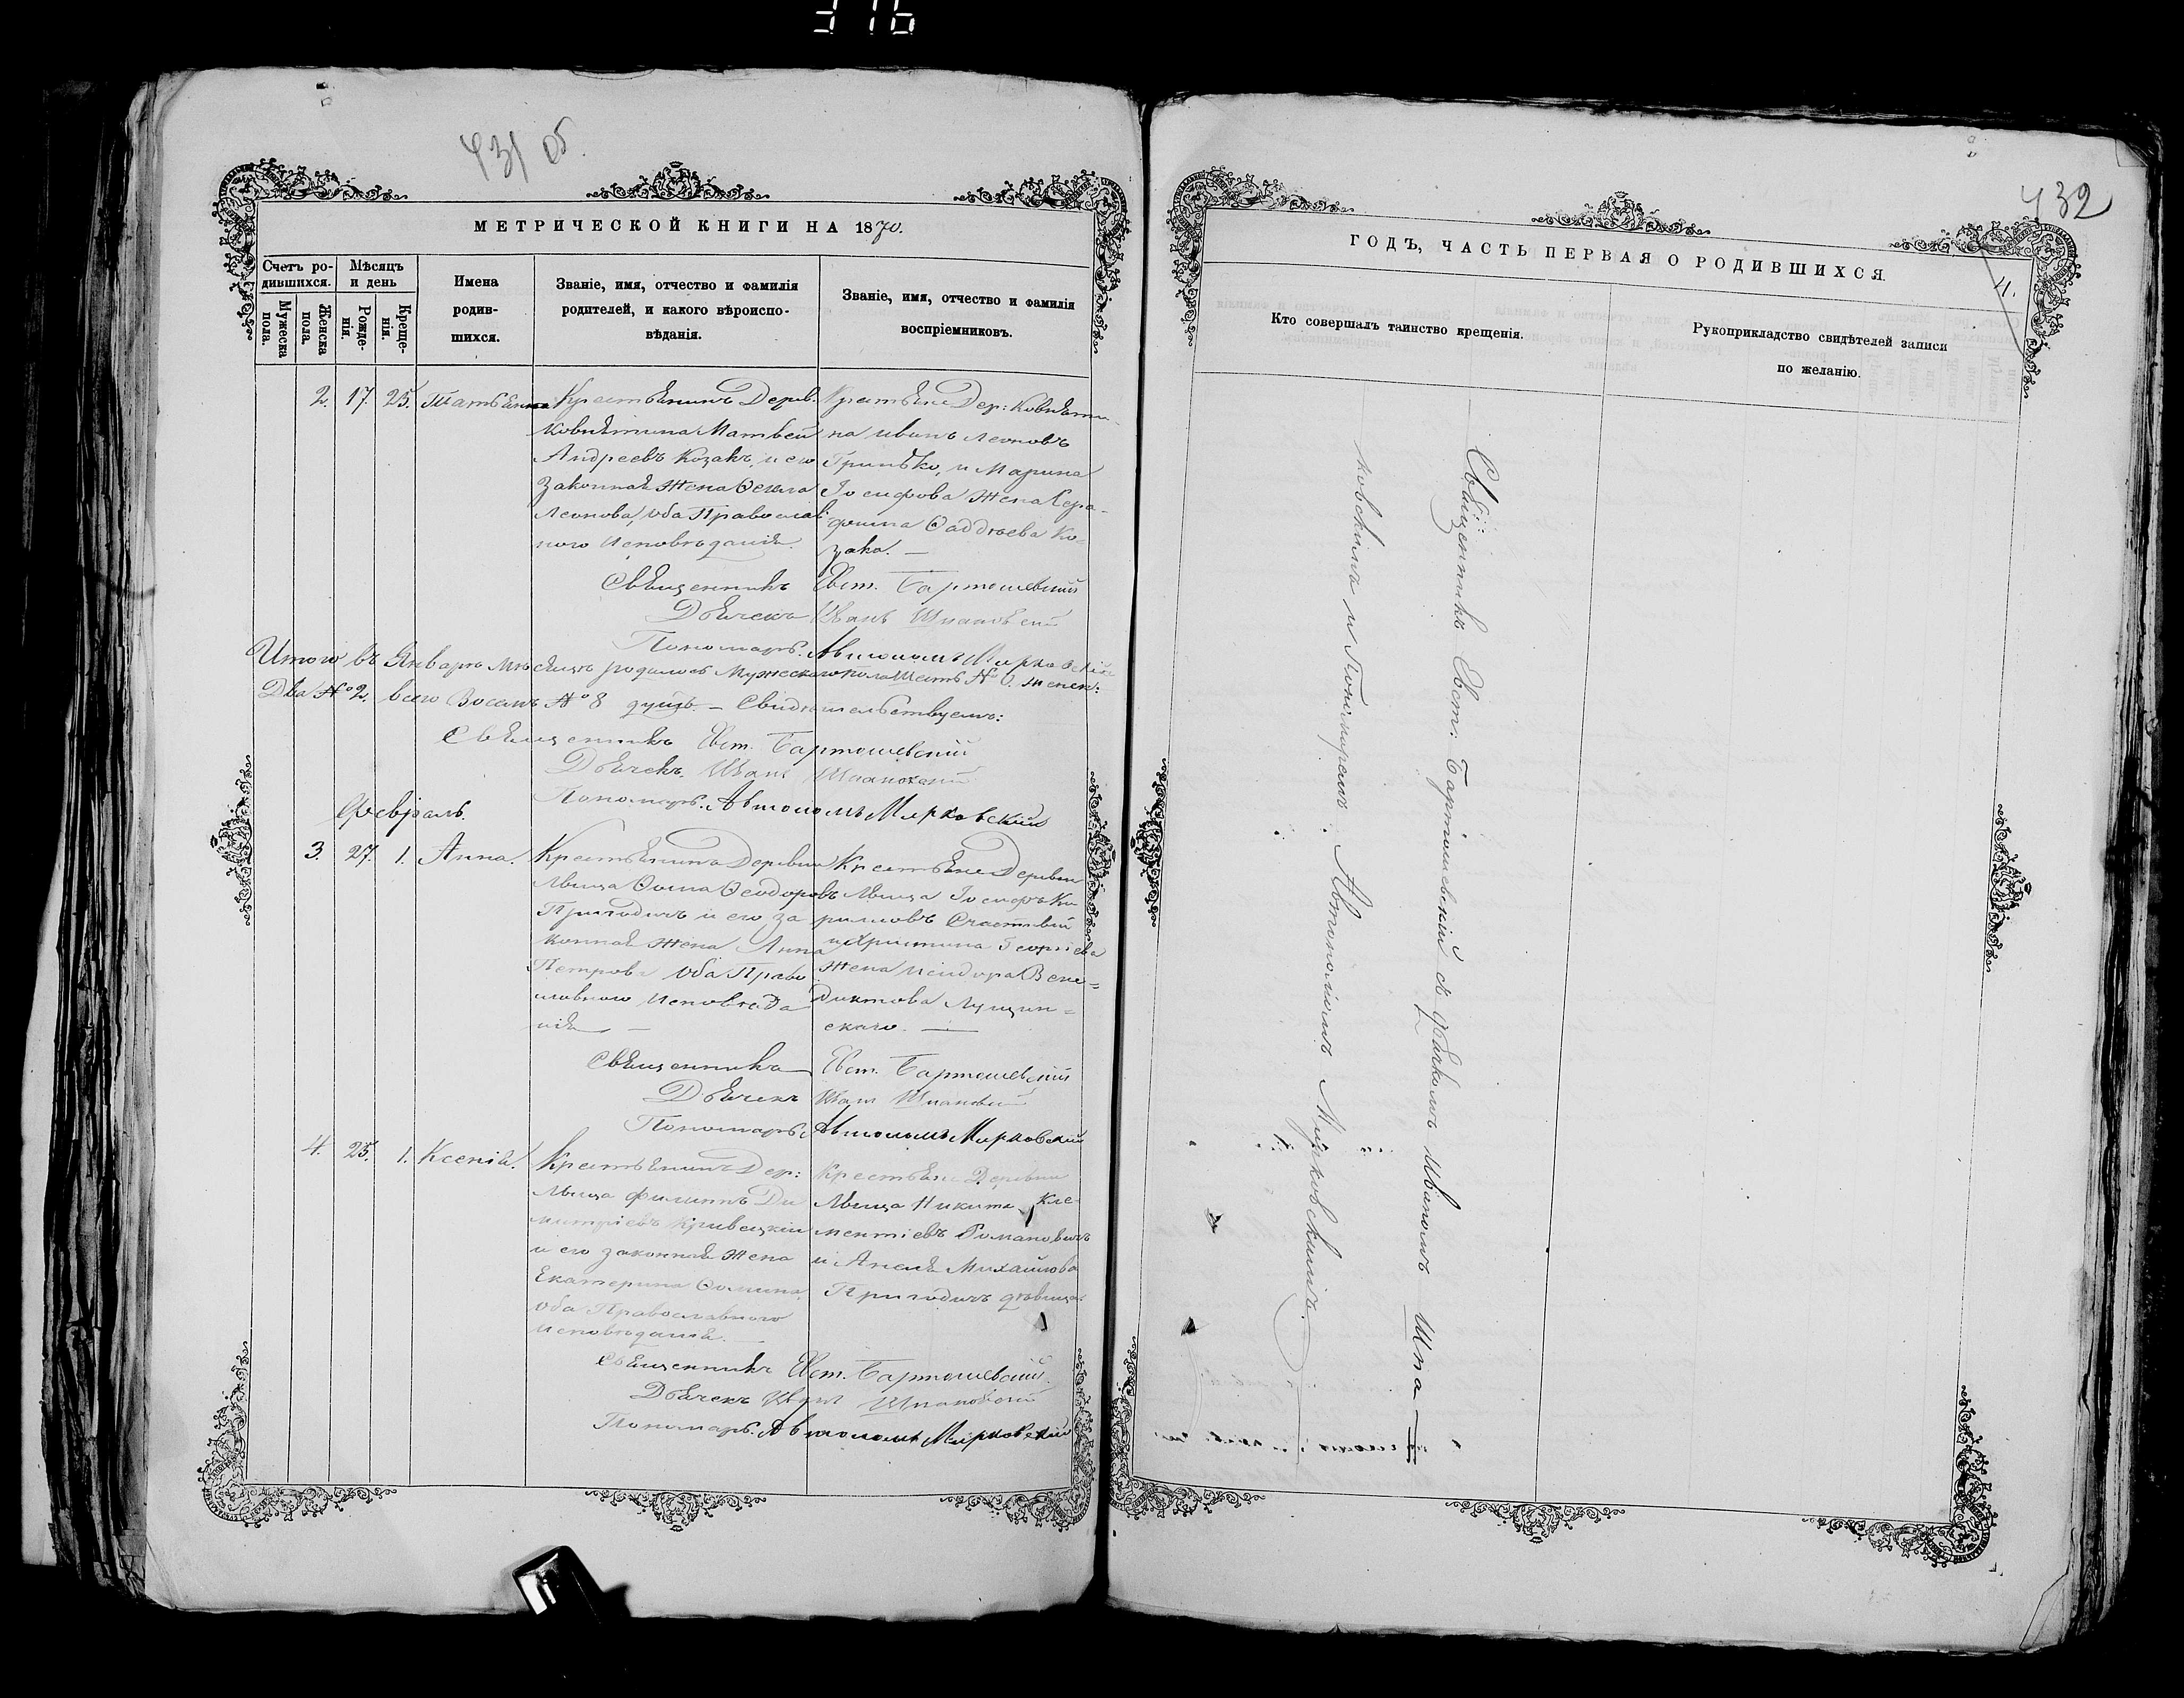 316
431 об.
МЕТРИЧЕСКОЙ КНИГИ НА 1870.
Счетъ родившихся.
Мѣсяцъ и день
Имена родившихся.
Званіе, имя, отчество и фамилія родителей, и какого вѣроисповѣданія.
Званіе, имя, отчество и фамилія воспріемниковъ.
Мужеска пола.
Женска пола.
Рожденія.
Крещенія.
2. 17. 25. Татьяна
Крестьянинъ Дерев.
Ковнятина Матвей
Андреевъ Козакъ, и его
Законная Жена Ѳекла
Леонова, Оба Православ
ного Исповѣданія.
Крестьяне Дер: Ковняти-
на Иванъ Леоновъ
Гринько, и Марина
Іосифова Жена Сера-
фима Ѳаддѣева Ко-
зака. —
Священникъ Евст. Бартошевскій
Дьячекъ Иванъ Шпаковскій
Пономарь. Автономъ Мирковскій
Итого въ Январѣ Мѣсяцѣ родилось Мужескаго пола Шесть № 6. женск:
Два № 2. всего Восемь № 8 душъ. — Свидѣтельствуемъ:
Священникъ Евст. Бартошевскій
Дьячекъ Иванъ Шпаковскій
Пономарь. Автономъ Мирковскій
Февраль.
3. 27. 1. Анна.
Крестьянинъ Деревни
Мыща Ѳома Ѳеодоровъ
Пригодичъ и его за
конная Жена Анна
Петрова Оба Право
славного Исповѣда
нія —
Крестьяне Деревни
Мыща Іосифъ Ки
рилловъ Счастный
и Христина Георгіева
Жена Исидора Вене=
диктова Лущин=
скаго. —
Священникъ Евст. Бартошевскій
Дьячекъ Иванъ Шпаковскій
Пономарь. Автономъ Мирковскій
4. 25. 1. Ксенія.
Крестьянинъ Дер:
Мыща Филиппъ Ди
митріевъ Кривецкій
и его законная Жена
Екатерина Ѳомина,
Оба Православного
Исповѣданія. —
Крестьяне Деревни
Мыща Никита Кле-
ментіевъ Романовичъ
и Анеля Михайлова
Пригодичъ дѣвица.
Священникъ Евст. Бартошевскій
Дьячекъ Иванъ Шпаковскій
Пономарь. Автономъ Мирковскій
432
ГОДЪ, ЧАСТЬ ПЕРВАЯ О РОДИВШИХСЯ.
4.
Кто совершалъ таинство крещенія.
Рукоприкладство свидѣтелей записи по желанію.
Священникъ Евст. Бартошевскій съ дьячкомъ Иваномъ Шпа
ковскимъ и Пономаремъ Автономомъ Мирковскимъ.